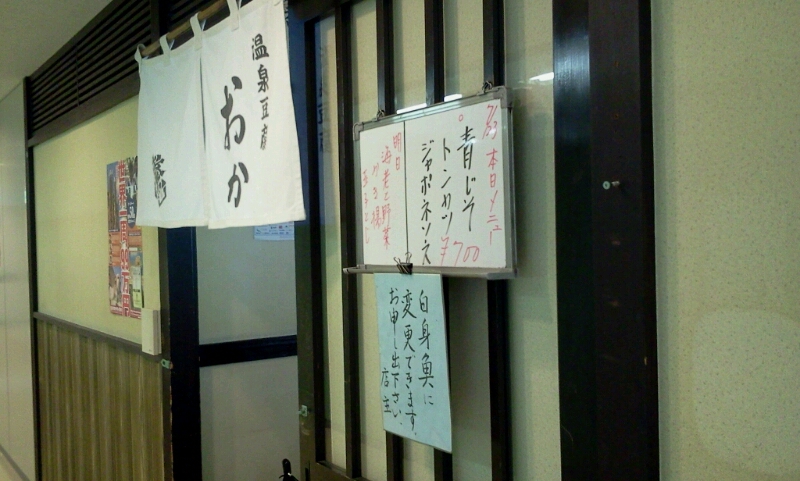 温泉豆彦
おか
本日メニュー
青じそ
トンカツ
ジャポネソース
¥700
明日
海老と野菜
かき揚
玉子とじ
白身魚に
変更できます。
お申し出下さい。
店主